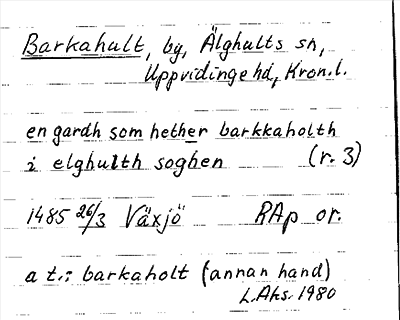 Barkahult, by, Älghults sn,
Uppvidinge hd, Kron. l.
en gardh som hether barkkaholth
i elghulth soghen (r. 3)
1485 26/3 Växjö RAp or.
a t.: barkaholt (annan hand)
L.Aks. 1980